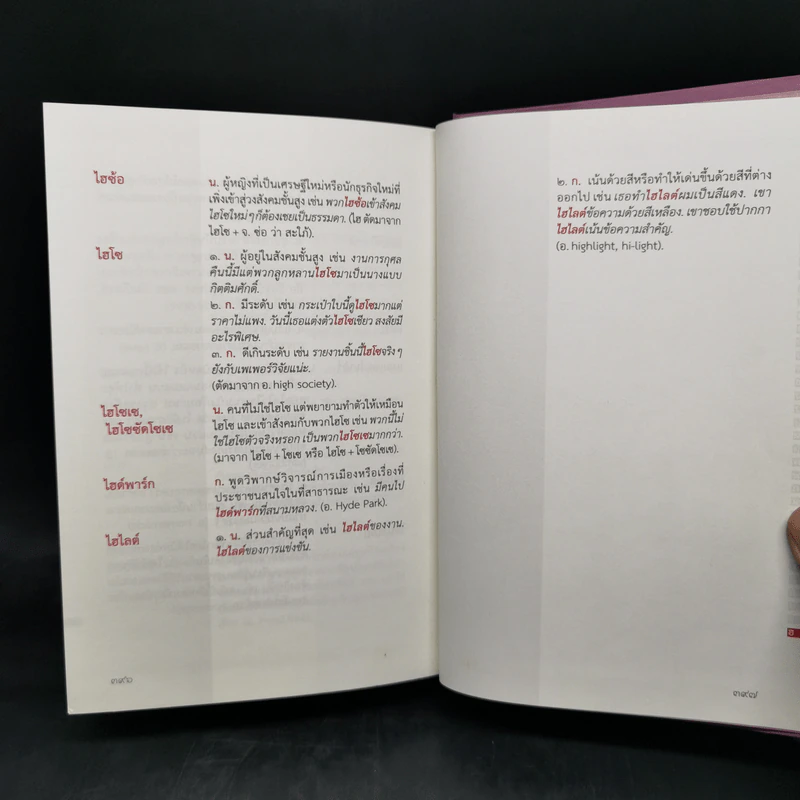 ไฮซ้อ
น. ผู้หญิงที่เป็นเศรษฐีใหม่หรือนักธุรกิจใหม่ที่
เพิ่งเข้าสู่วงสังคมชั้นสูง เช่น พวกไฮซ้อเข้าสังคม
ไฮโซใหม่ๆ ก็ต้องเชยเป็นธรรมดา. (ไฮ ตัดมาจาก
ไฮโซ + จ. ซ่อ ว่า สะใภ้).
ไฮโซ
๑. น. ผู้อยู่ในสังคมชั้นสูง เช่น งานการกุศล
คืนนี้มีแต่พวกลูกหลานไฮโซมาเป็นนางแบบ
กิตติมศักดิ์.
๒. ก. มีระดับ เช่น กระเป๋าใบนี้ดูไฮโซมากแต่
ราคาไม่แพง. วันนี้เธอแต่งตัวไฮโซเชียว สงสัยมี
อะไรพิเศษ.
๓. ก. ดีเกินระดับ เช่น รายงานชิ้นนี้ไฮโซจริงๆ
ยังกับเพเพอร์วิจัยแน่ะ.
(ตัดมาจาก อ. high society).
ไฮโซเซ,
ไฮโซซัดโซเซ
น. คนที่ไม่ใช่ไฮโซ แต่พยายามทำตัวให้เหมือน
ไฮโซ และเข้าสังคมกับพวกไฮโซ เช่น พวกนี้ไม่
ใช่ไฮโซตัวจริงหรอก เป็นพวกไฮโซเซมากกว่า.
(มาจาก ไฮโซ + โซเซ หรือ ไฮโซ + โซซัดโซเซ).
ไฮด์พาร์ก
ก. พูดวิพากษ์วิจารณ์การเมืองหรือเรื่องที่
ประชาชนสนใจในที่สาธารณะ เช่น มีคนไป
ไฮด์พาร์กที่สนามหลวง. (อ. Hyde Park).
ไฮไลต์
๑. น. ส่วนสำคัญที่สุด เช่น ไฮไลต์ของงาน.
ไฮไลต์ของการแข่งขัน.
๓๙๖
๒. ก. เน้นด้วยสีหรือทำให้เด่นขึ้นด้วยสีที่ต่าง
ออกไป เช่น เธอทำไฮไลต์ผมเป็นสีแดง. เขา
ไฮไลต์ข้อความด้วยสีเหลือง. เขาชอบใช้ปากกา
ไฮไลต์เน้นข้อความสำคัญ.
(อ. highlight, hi-light).
ฮ
๓๙๗